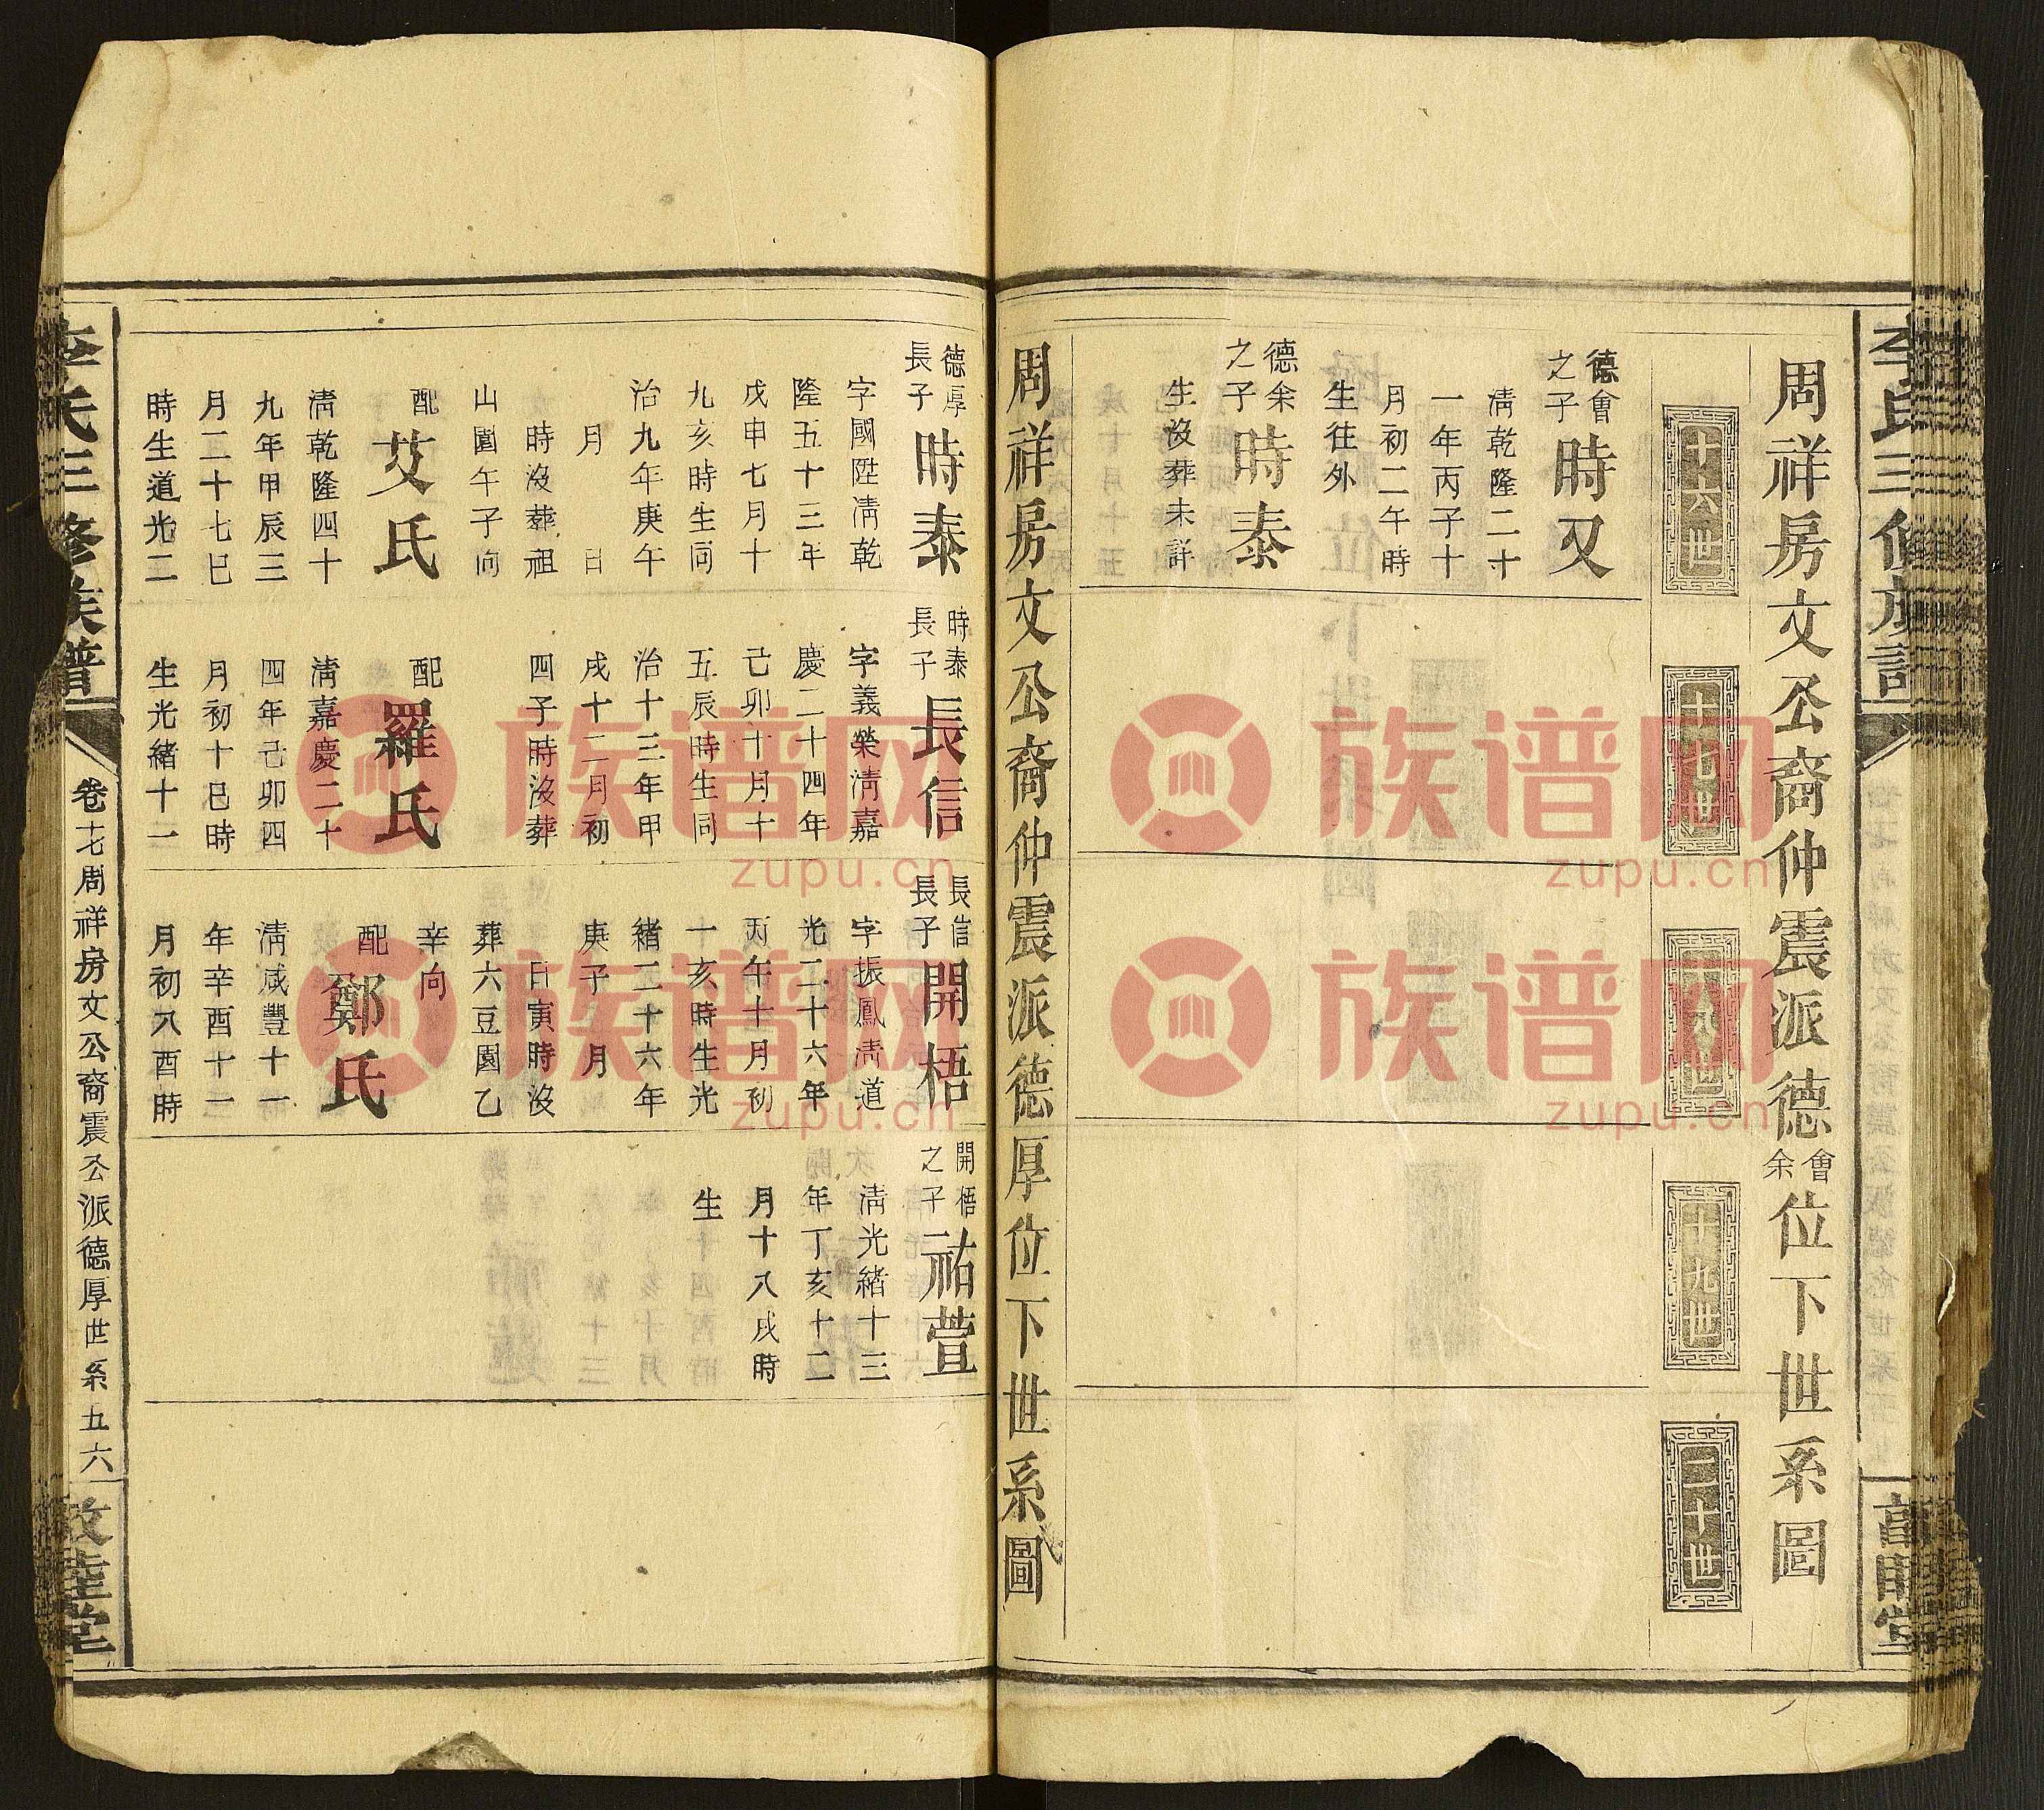 周祥房文公裔仲震派德會余位下世系圖
十六世
十七世
十八世
十九世
二十世
德會之子
時又
淸乾隆二十
一年丙子十
月初二午時
生往外
德余之子
時泰
生沒葬未詳
周祥房文公裔仲震派德厚位下世系圖
德厚長子
時泰
字國陞淸乾
隆五十三年
戊申七月十
九亥時生同
治九年庚午
月 日
時沒葬祖
山園午子向
配
艾氏
淸乾隆四十
九年甲辰三
月二十七巳
時生道光二
時泰長子
長信
字義榮淸嘉
慶二十四年
己卯十月十
五辰時生同
治十三年甲
戌十二月初
四子時沒葬
配
羅氏
淸嘉慶二十
四年己卯四
月初十巳時
生光緒十一
長信長子
開梧
字振鳳淸道
光二十六年
丙午十月初
一亥時生光
緒二十六年
庚子 月
日寅時沒
葬六豆園乙
辛向
配
鄭氏
淸咸豐十一
年辛酉十一
月初八酉時
開梧之子
祐萱
淸光緒十三
年丁亥十二
月十八戌時
生
李氏三修族譜
卷十七周祥房文公裔震公派德厚世系五六
敦睦堂
族谱网
zupu.cn
族谱网
zupu.cn
族谱网
zupu.cn
族谱网
zupu.cn